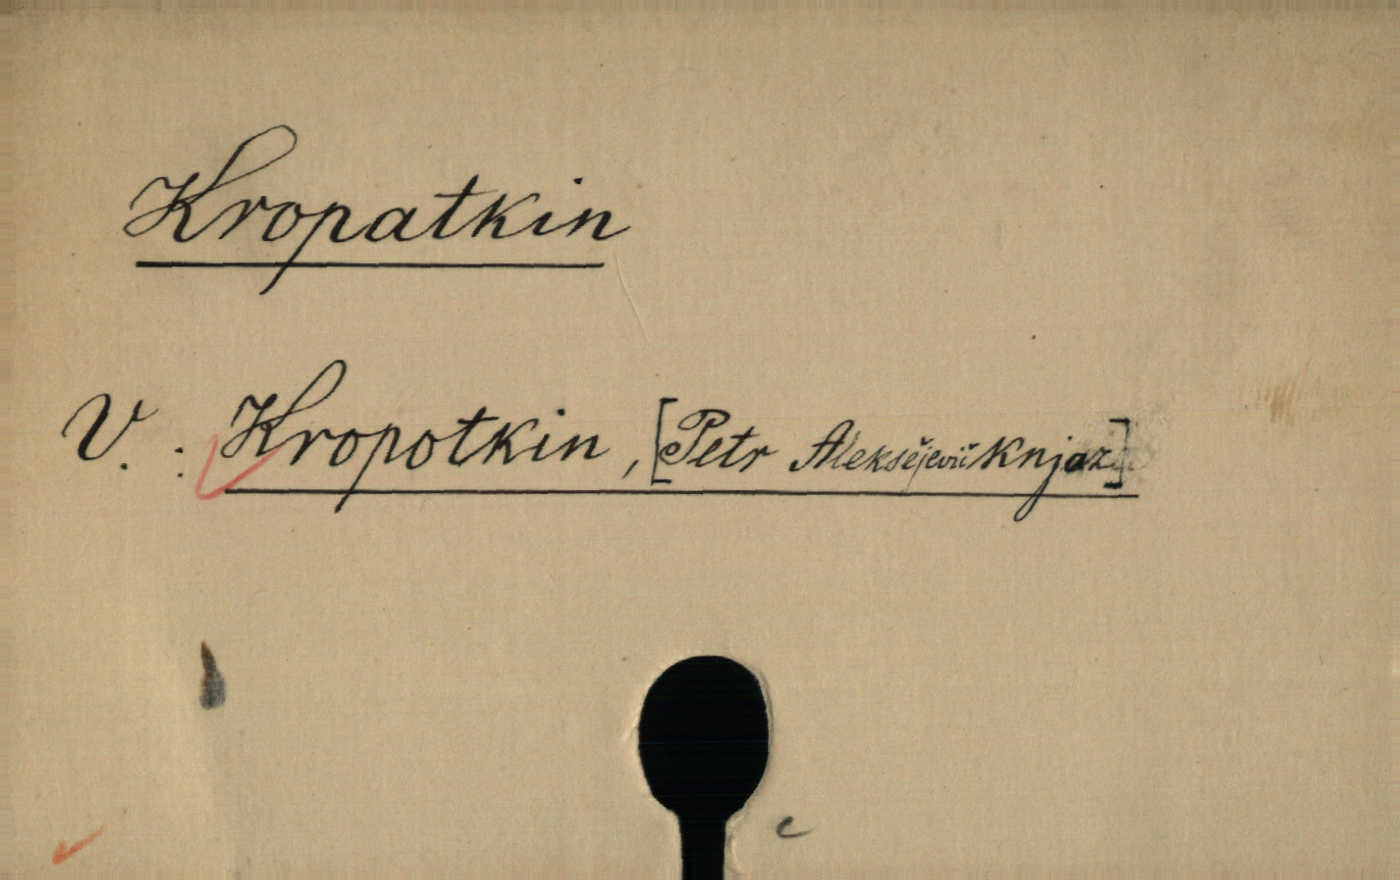 Kropatkin
V. : Kropotkin, [Petr Aleksějevič Knjaz]
c